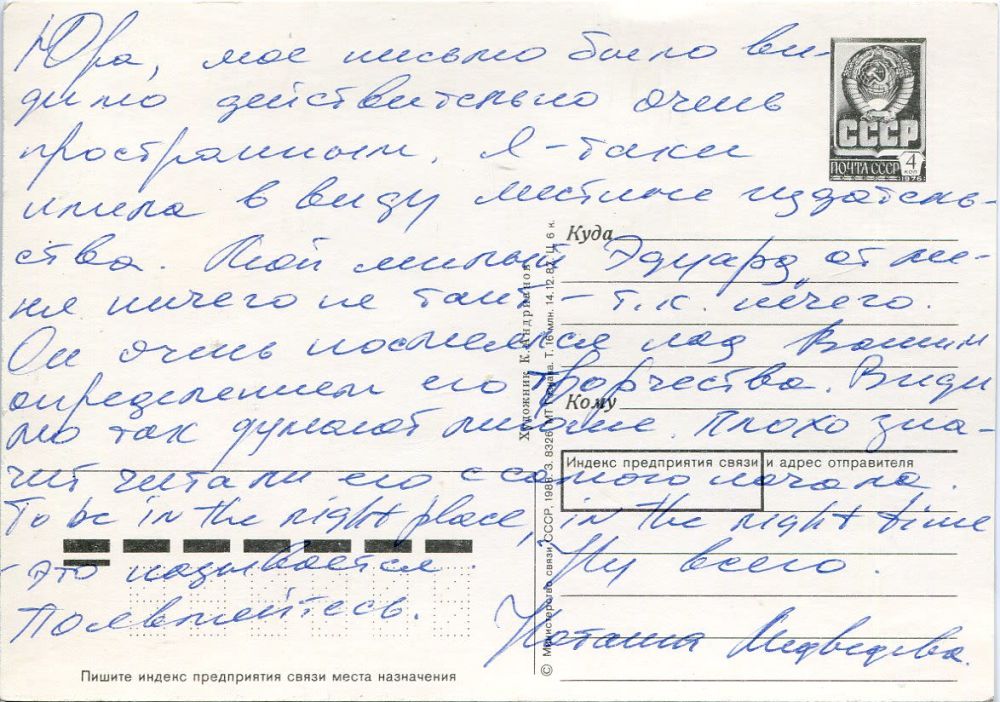 Юра, мое письмо было ви-
димо действительно очень
пространным. Я-таки
имела в виду местные издатель-
ства. Мой милый Эдуард от ме-
ня ничего не таит – т.к. нечего.
Он очень посмеялся над Вашим
определением его творчества. Види
мо так думают многие. Плохо зна-
чит читали его с самого начала.
To be in the right place, in the right time
- это называется. Ну всего.
Появляйтесь.
Наташа Медведева.
СССР
ПОЧТА СССР
4
КОП
1976
Куда
Кому
Индекс предприятия связи и адрес отправителя
Художник К. Андрианов
© Министерство связи СССР, 1988. З. 8326. МТ Гознака. Т. 16 млн. 14.12.87. Ц. 6 к.
Пишите индекс предприятия связи места назначения